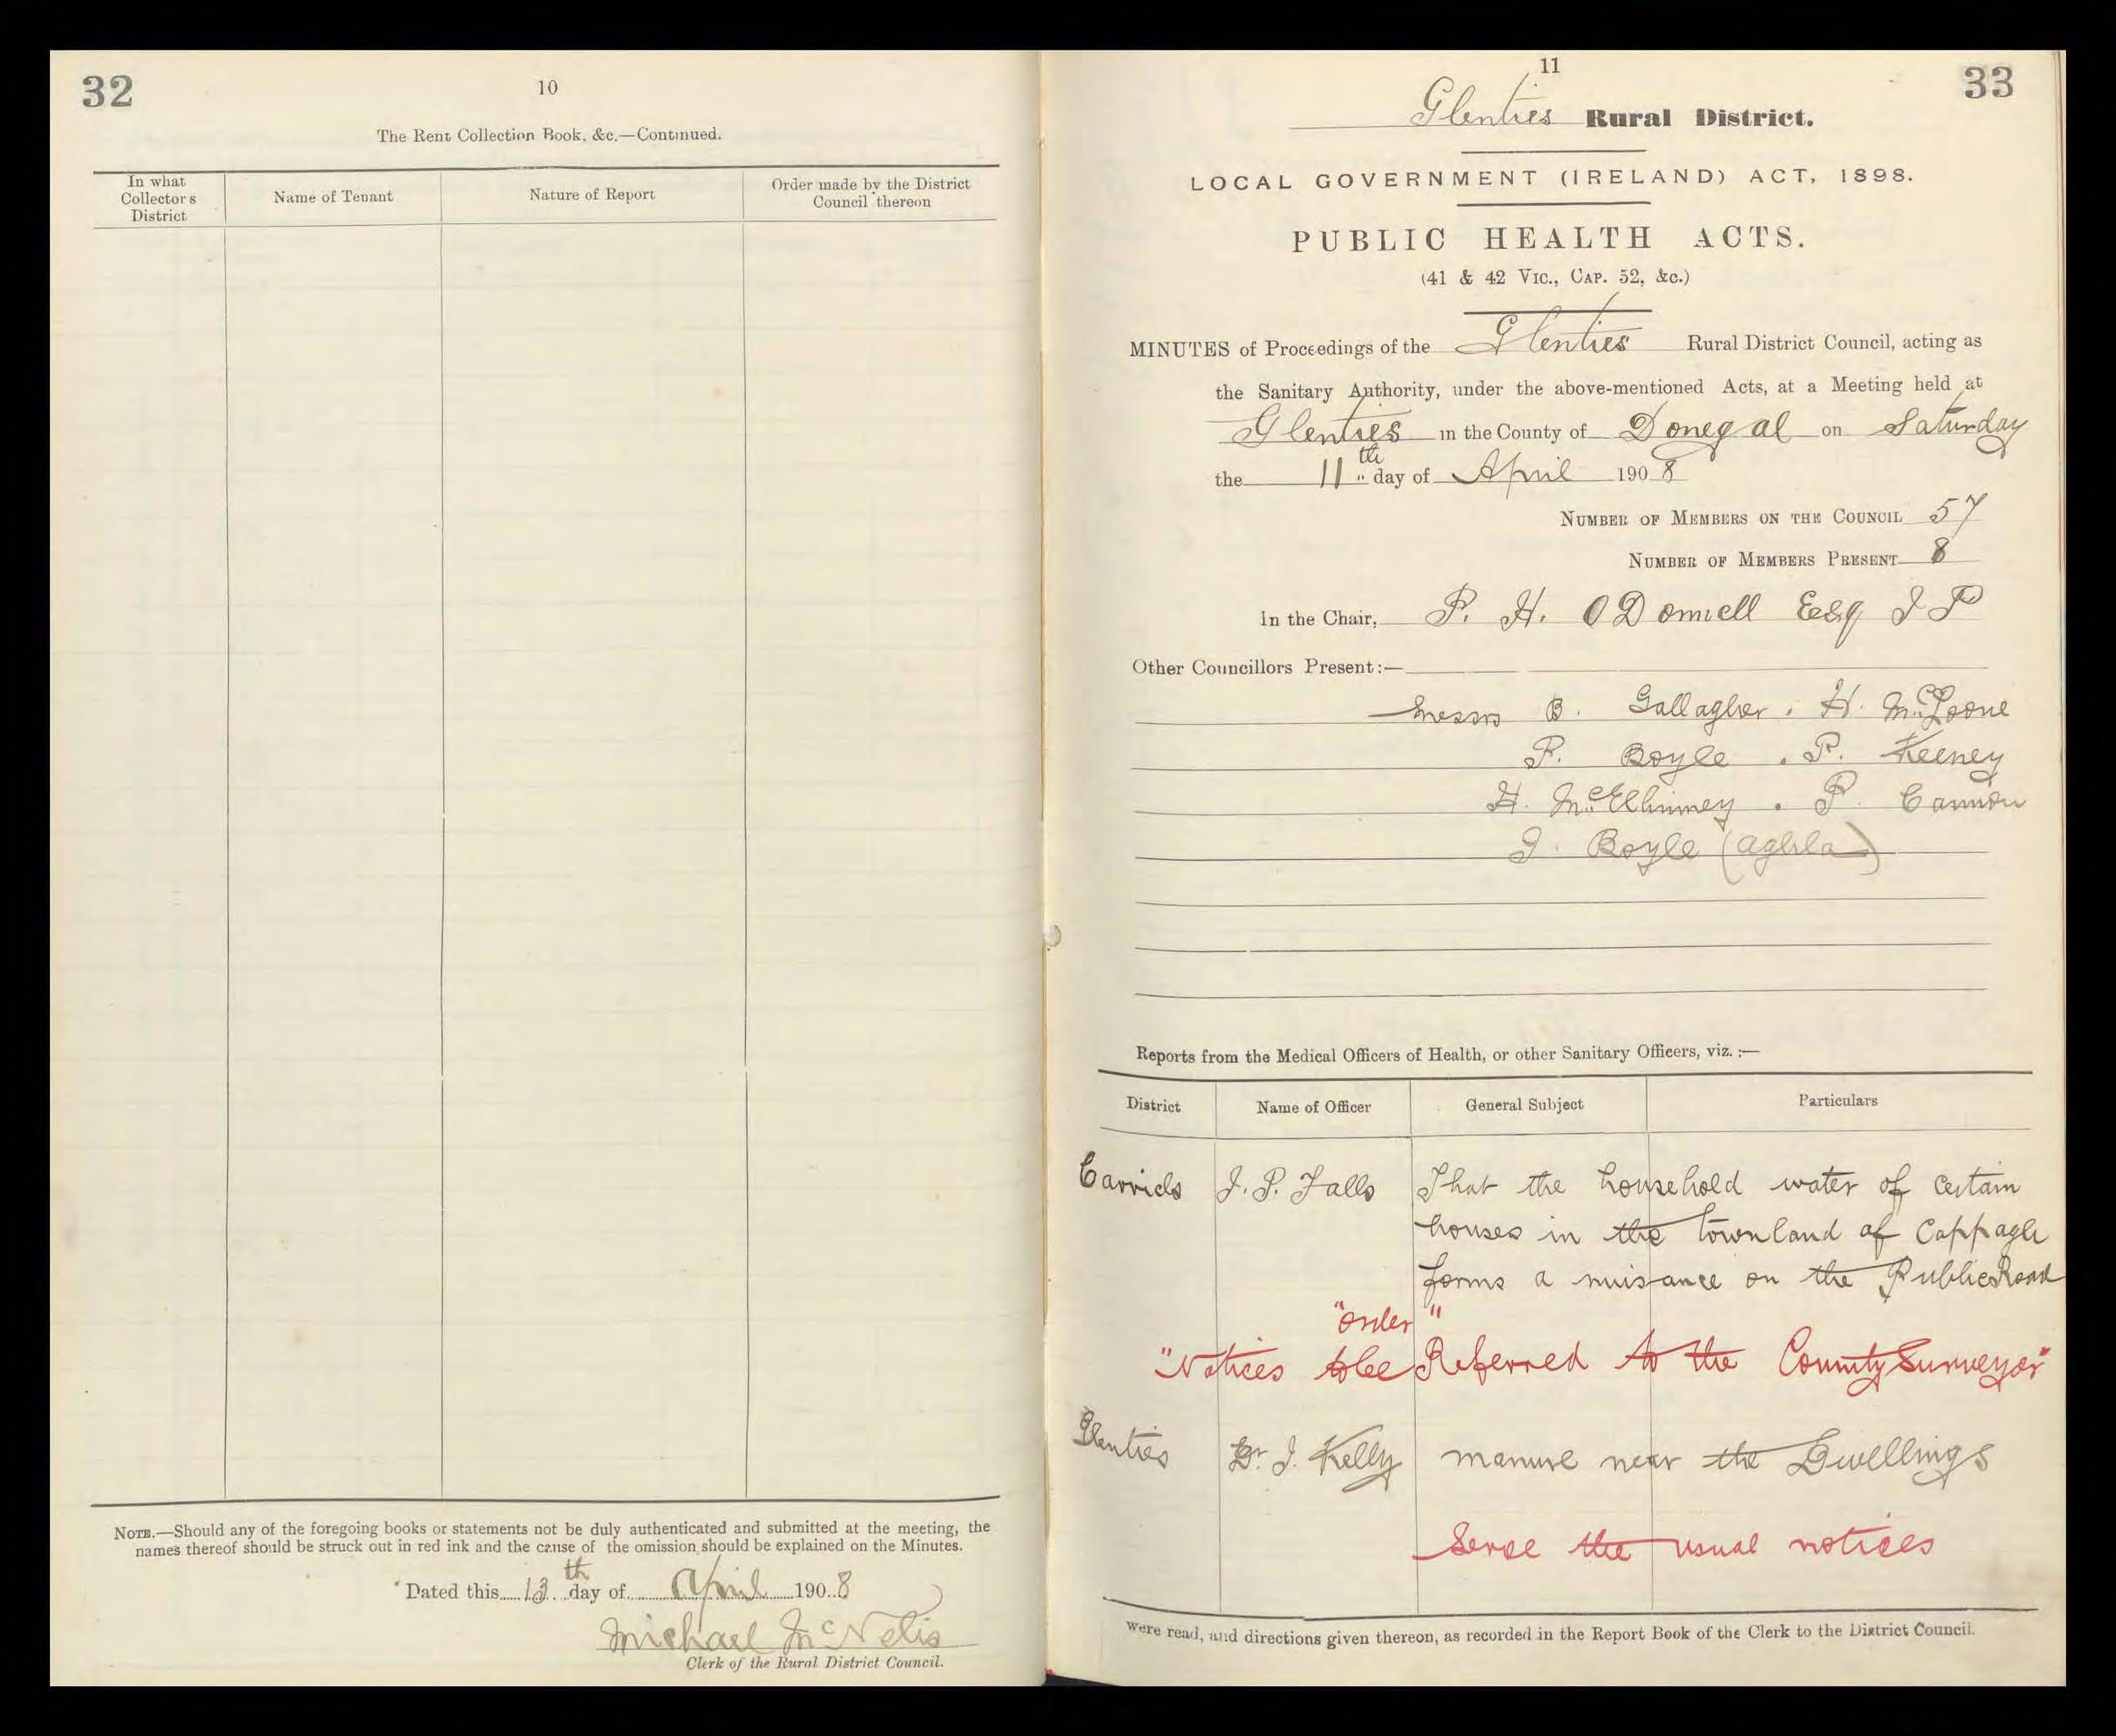 32
10
The Rent Collection Book, &c.—Continued.
In what Collectors District
Name of Tenant
Nature of Report
Order made by the District Council thereon
NOTE.—Should any of the foregoing books or statements not be duly authenticated and submitted at the meeting, the
names thereof should be struck out in red ink and the cause of the omission should be explained on the Minutes.
Dated this 13th day of April 1908
Michael McNelis
Clerk of the Rural District Council.
11
33
Glenties Rural District.
LOCAL GOVERNMENT (IRELAND) ACT, 1898.
PUBLIC HEALTH ACTS.
(41 & 42 VIC., CAP. 52, &c.)
MINUTES of Proceedings of the Glenties Rural District Council, acting as
the Sanitary Authority, under the above-mentioned Acts, at a Meeting held at
Glenties in the County of Donegal on Saturday
the 11th day of April 1908
NUMBER OF MEMBERS ON THE COUNCIL 57
NUMBER OF MEMBERS PRESENT 8
In the Chair, P. H. O Donnell Esq J P
Other Councillors Present:—
Messrs B. Gallagher . H. McLoone
P. Boyle . P. Keeney
H. McElhinney . P. Cannon
J. Boyle (Aghla)
Reports from the Medical Officers of Health, or other Sanitary Officers, viz. :—
District
Name of Officer
General Subject
Particulars
Carrick J. P. Falls That the household water of certain
houses in the townland of Cappagh
forms a nuisance on the Public Road
"Order"
"Notices to be Referred to the County Surveyor"
Glenties Dr J. Kelly manure near the Dwellings
Serve the usual notices
Were read, and directions given thereon, as recorded in the Report Book of the Clerk to the District Council.